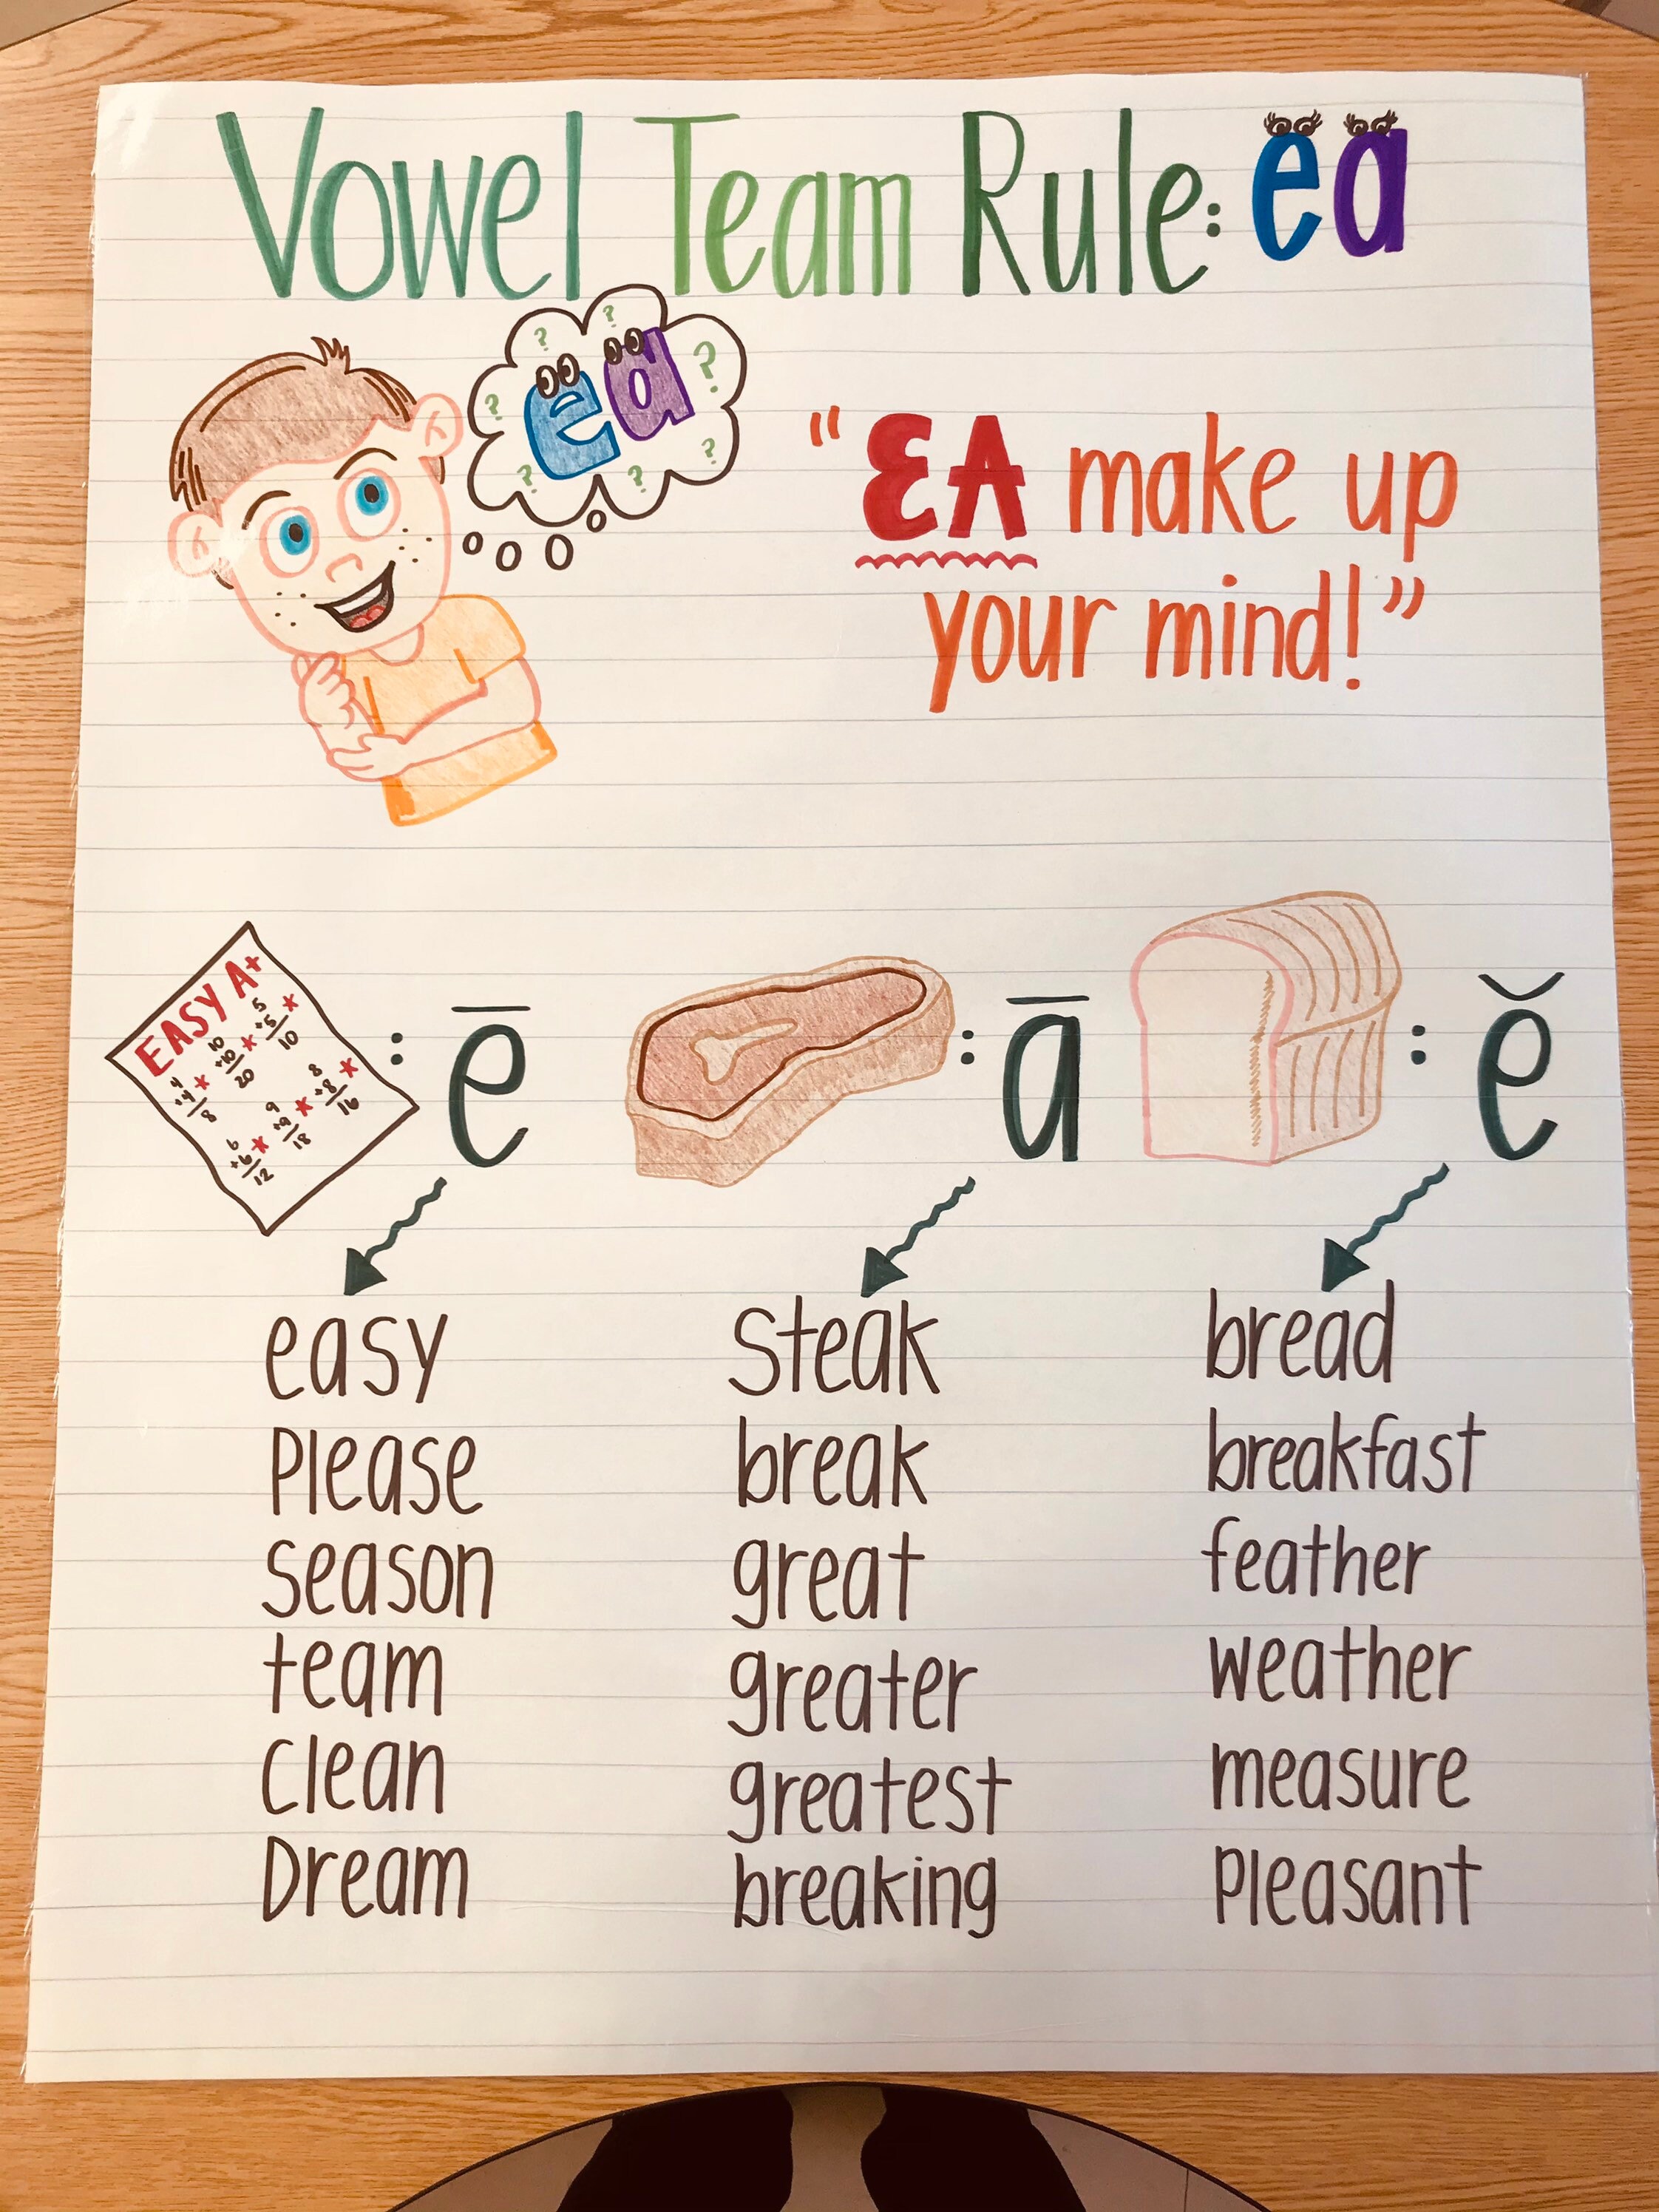 Vowel Team Rule: ea
? ? ? ? ? ? ?
ea
"EA make up
your mind!"
EASY A+
4 +4 8
10 +10 20
5 +5 10
6 +6 12
9 +9 18
8 +8 16
: ē
: ā
: ĕ
easy
Please
season
team
Clean
Dream
Steak
break
great
greater
greatest
breaking
bread
breakfast
feather
weather
measure
Pleasant